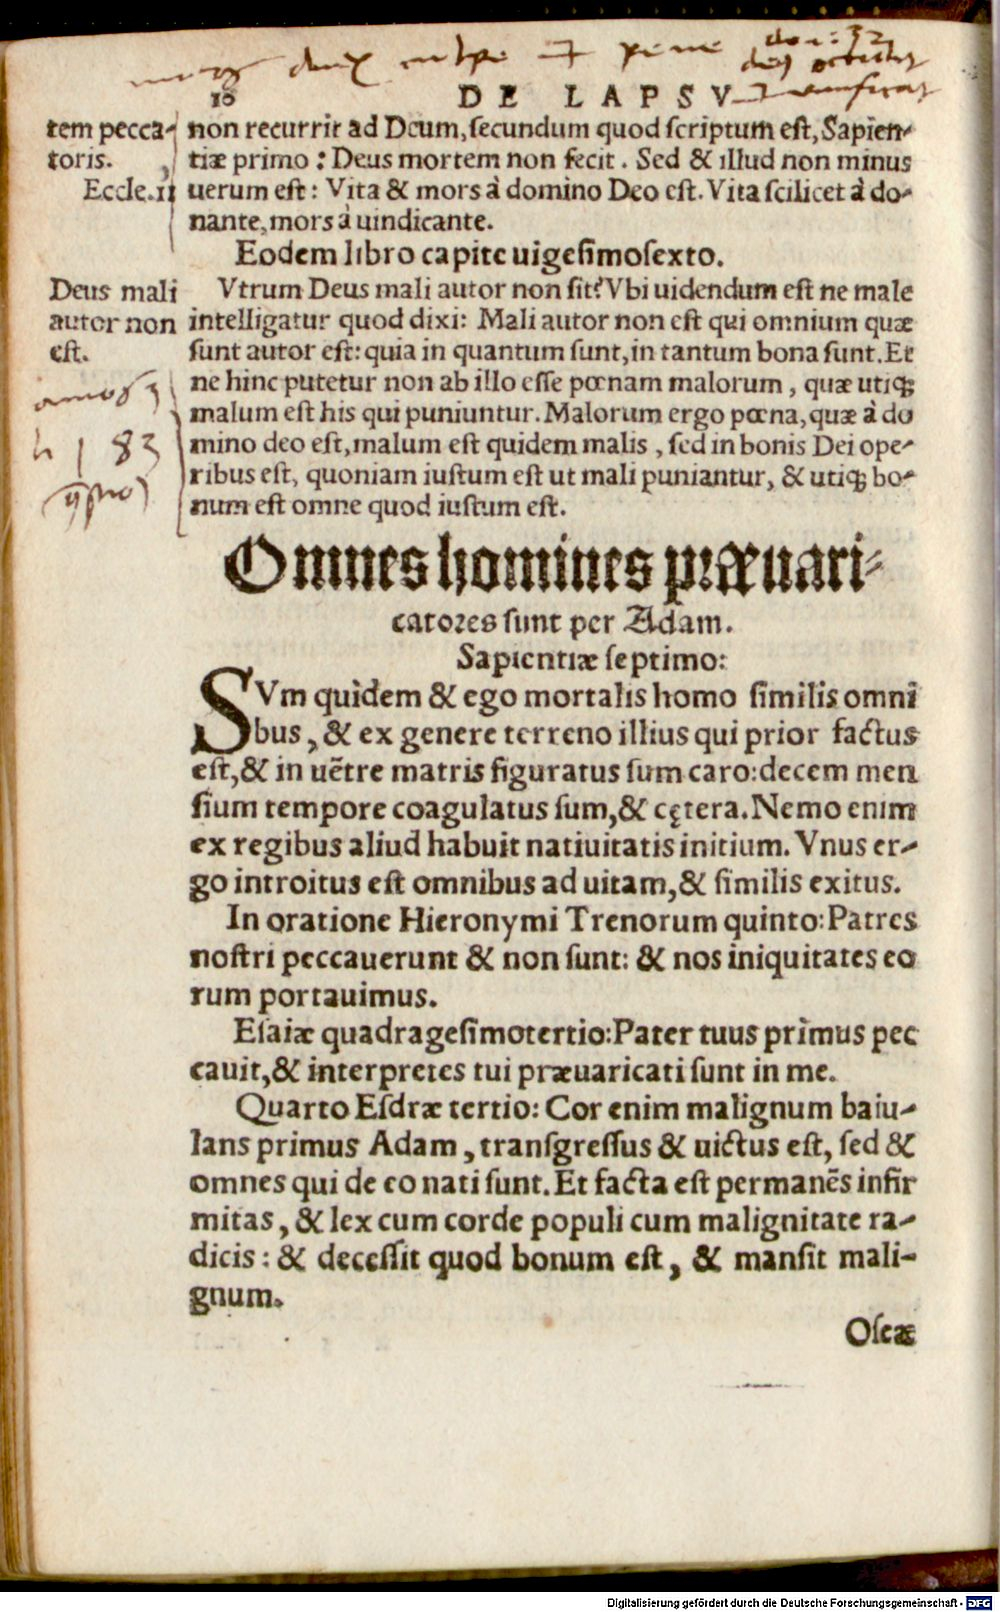 10
DE LAPSV
tem pecca-
toris.
Eccle.11
non recurrit ad Deum, secundum quod scriptum est, Sapien-
tiæ primo: Deus mortem non fecit. Sed & illud non minus
uerum est: Vita & mors à domino Deo est. Vita scilicet à do-
nante, mors à uindicante.
Eodem libro capite uigesimosexto.
Deus mali
autor non
est.
Vtrum Deus mali autor non sit? Vbi uidendum est ne male
intelligatur quod dixi: Mali autor non est qui omnium quæ
sunt autor est: quia in quantum sunt, in tantum bona sunt. Et
ne hinc putetur non ab illo esse pœnam malorum, quæ utiqꝫ
malum est his qui puniuntur. Malorum ergo pœna, quæ à do
mino deo est, malum est quidem malis, sed in bonis Dei ope-
ribus est, quoniam iustum est ut mali puniantur, & utiqꝫ bo-
num est omne quod iustum est.
Omnes homines præuari-
catores sunt per Adam.
Sapientiæ septimo:
SVm quidem & ego mortalis homo similis omni
bus, & ex genere terreno illius qui prior factus
est, & in uētre matris figuratus sum caro: decem men
sium tempore coagulatus sum, & cętera. Nemo enim
ex regibus aliud habuit natiuitatis initium. Vnus er-
go introitus est omnibus ad uitam, & similis exitus.
In oratione Hieronymi Trenorum quinto: Patres
nostri peccauerunt & non sunt: & nos iniquitates eo
rum portauimus.
Esaiæ quadragesimotertio: Pater tuus primus pec
cauit, & interpretes tui præuaricati sunt in me.
Quarto Esdræ tertio: Cor enim malignum baiu-
lans primus Adam, transgressus & uictus est, sed &
omnes qui de eo nati sunt. Et facta est permanēs infir
mitas, & lex cum corde populi cum malignitate ra-
dicis: & decessit quod bonum est, & mansit mali-
gnum.
Oseæ
Digitalisierung gefördert durch die Deutsche Forschungsgemeinschaft - DFG